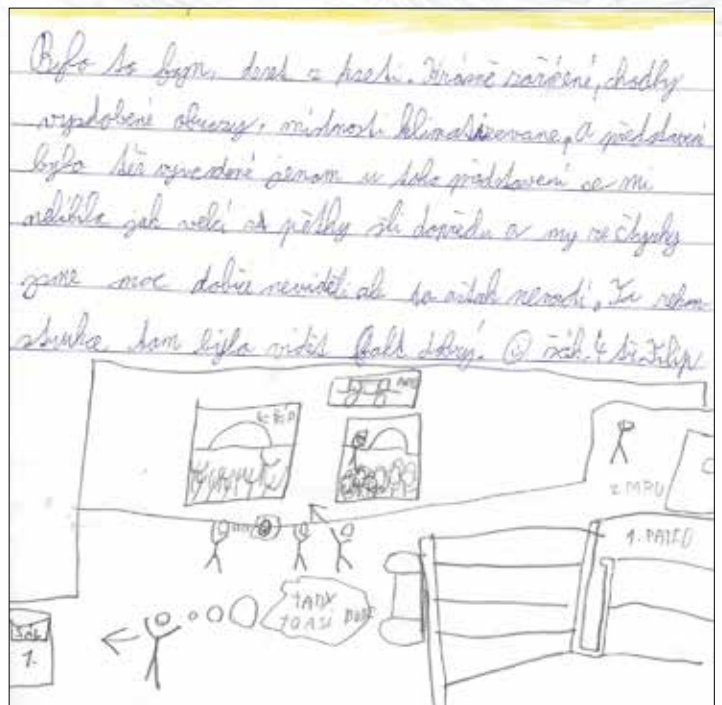 Bylo to bezva, deset z deseti. Krásně zařízené, chodby
vyzdobené obrazy, místnosti klimatizované, a představení
bylo též vyvedené jenom u toho představení se mi
nelíbilo jak velcí páťky šli dopředu a my ze čtyřky
jsme moc dobře neviděli ale to avšak nevadí, Ta rekon
strukce tam byla vidět fakt dobrý. žák 4 tř. Filip
2. MPO
1. PATRO
TADY
TO ASI BUDE
1.